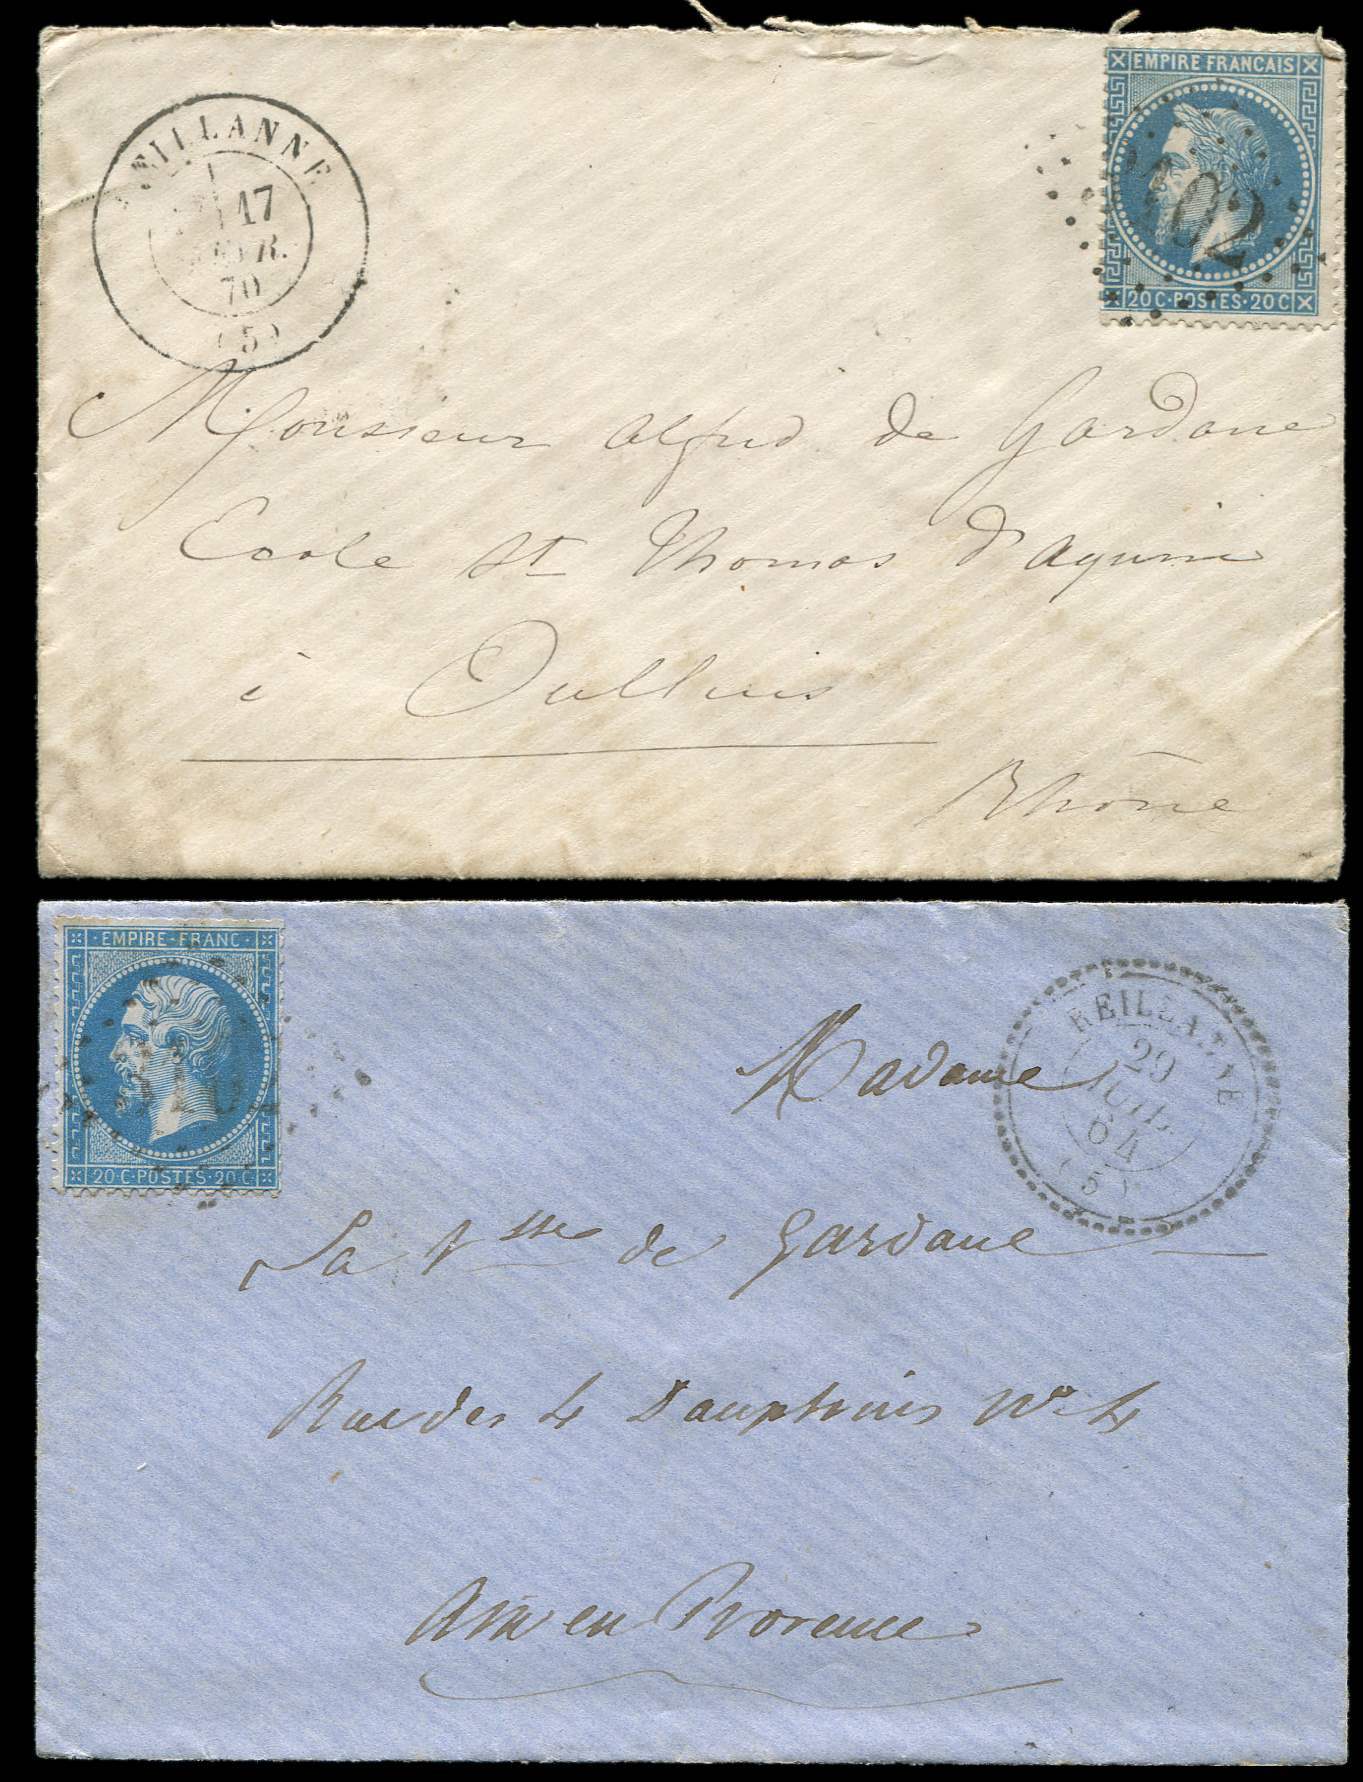 EMPIRE FRANCAIS
REILLANNE
17
FEVR.
70
(5)
102
20 C · POSTES · 20 C
Monsieur Alfred de Gardane
Ecole St Thomas d'Aquin
à Oullins
Rhône
· EMPIRE · FRANC ·
3102
20 · C · POSTES · 20 · C
REILLANNE
29
JUIL.
64
(5)
Madame
La Vsse de Gardane
Rue des 4 Dauphins No 4
Aix en Provence